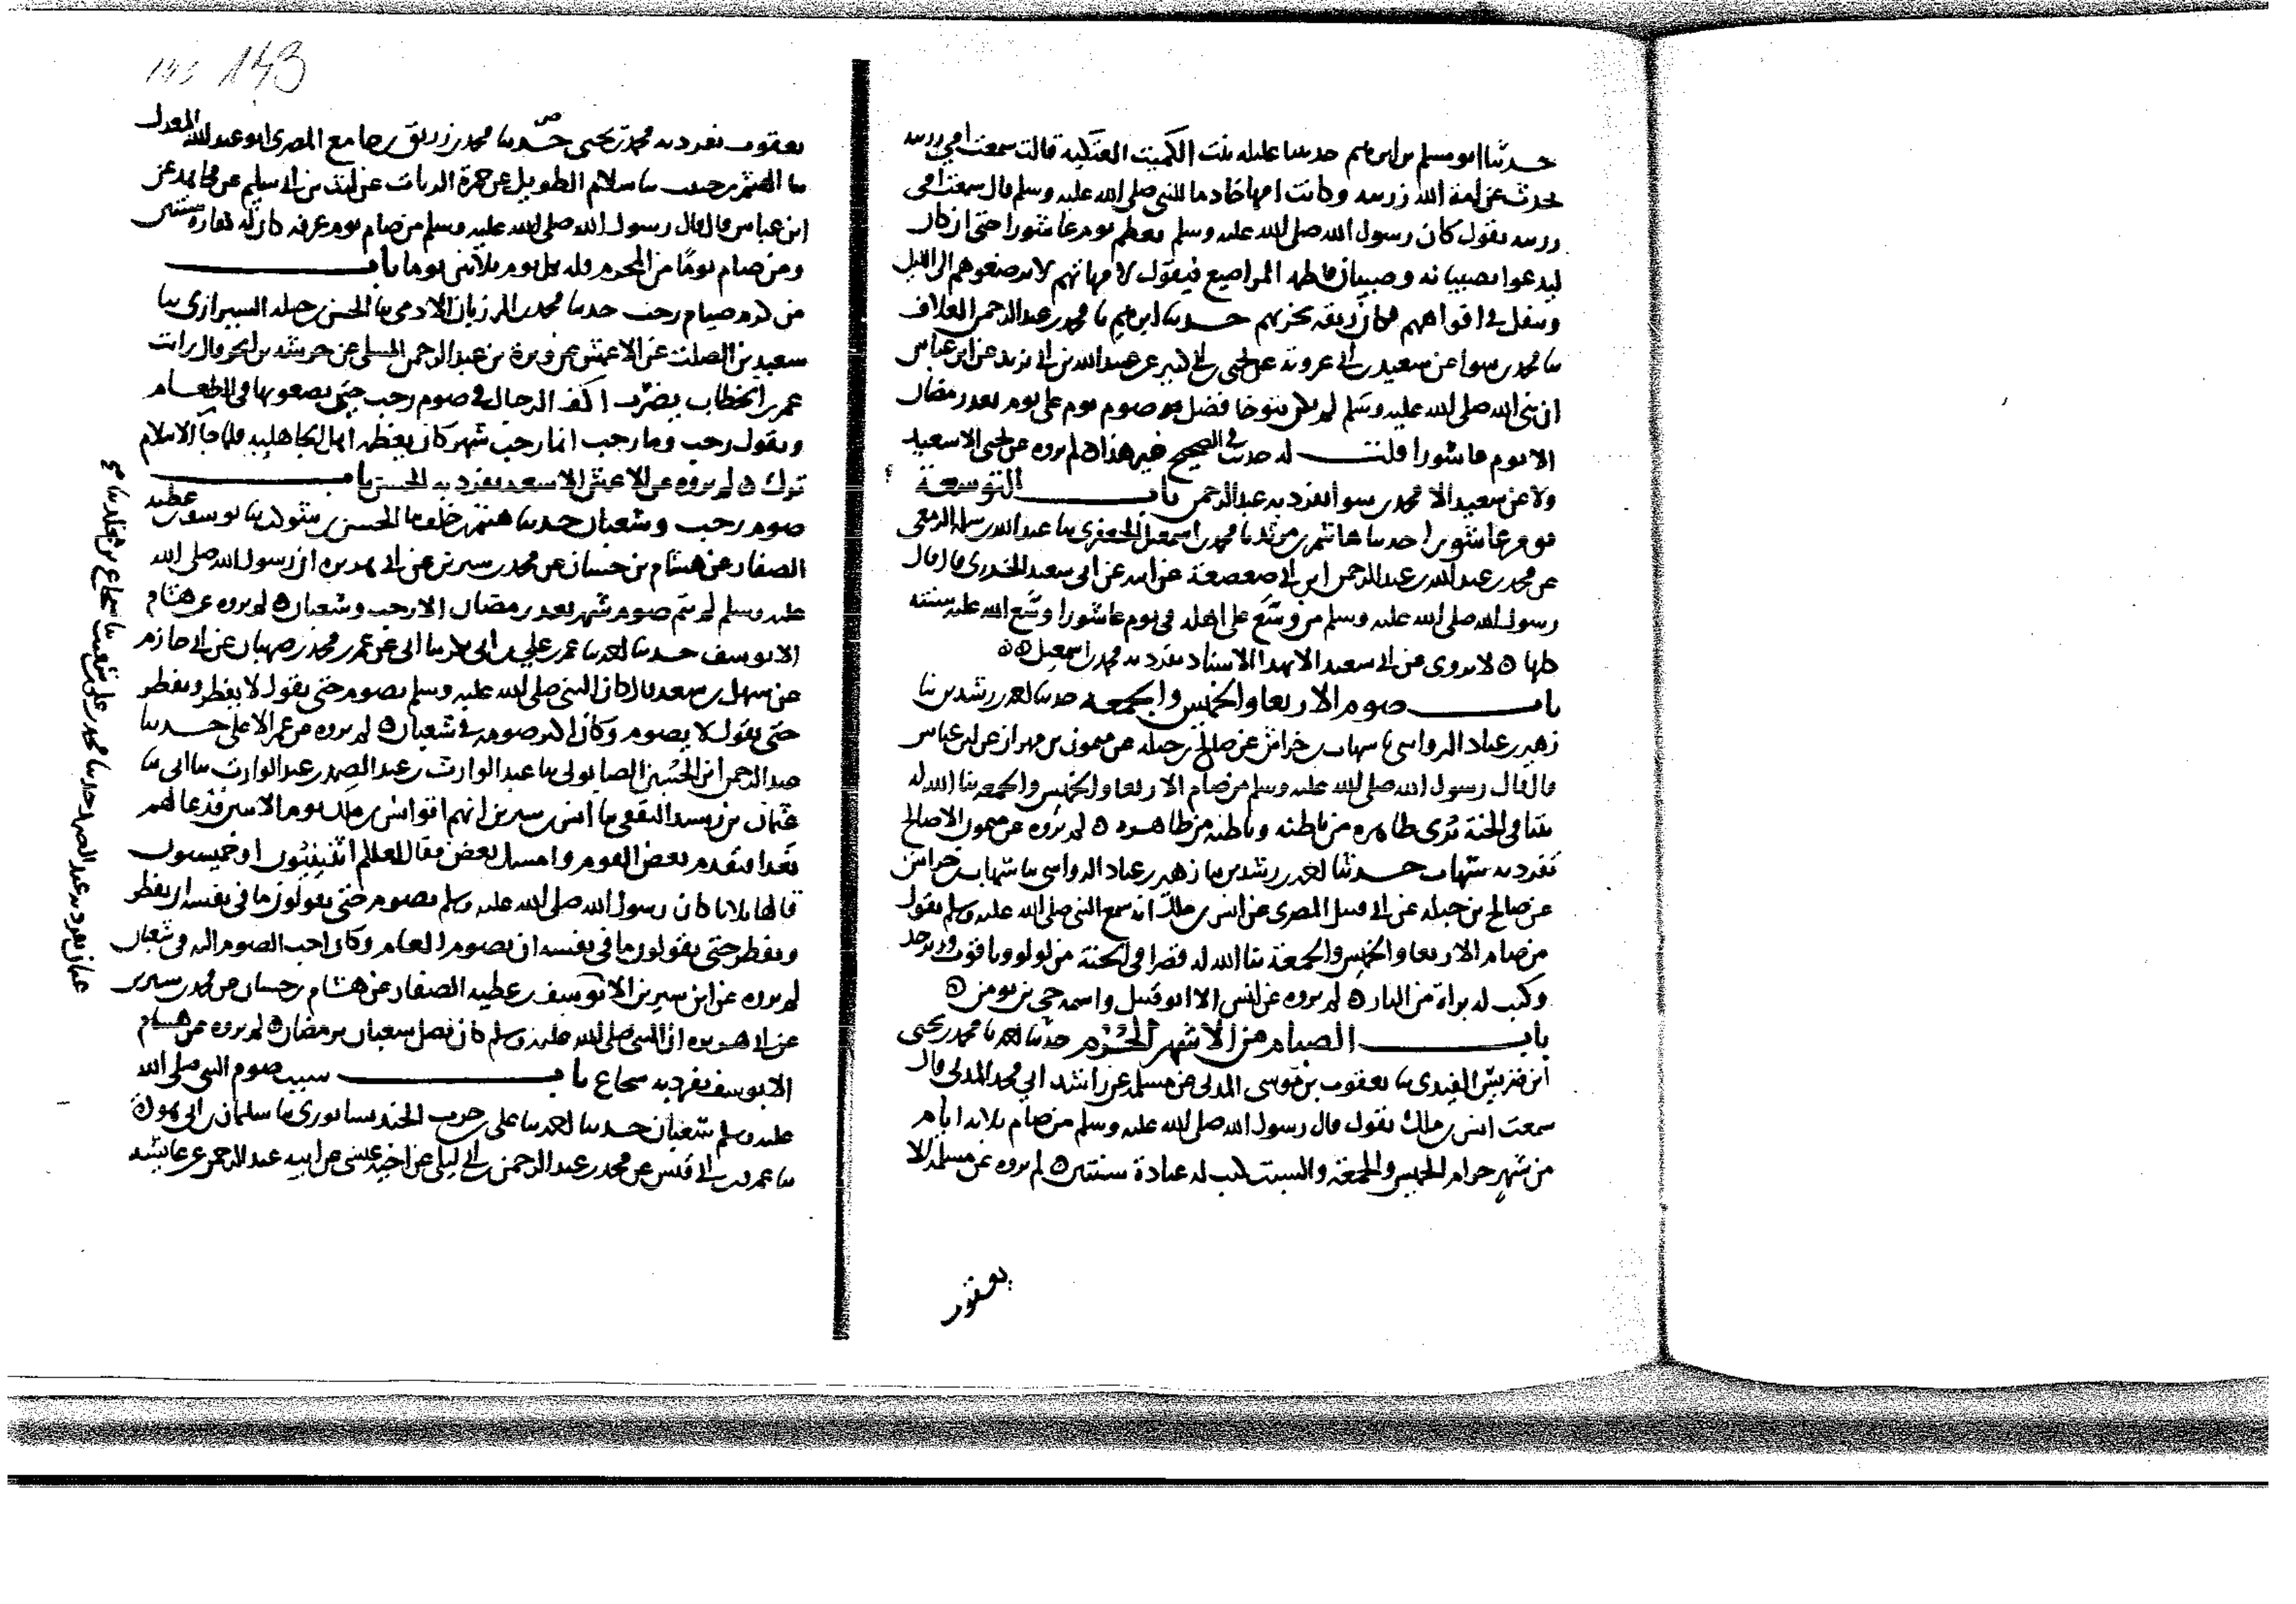 حدثنا ابو مسلم بن ابرهيم حدثتنا عليله بنت الكميت العتكيه قالت سمعت امي
تحدث عن امة الله رزينه وكانت امها خادما للنبي صلى الله عليه وسلم قال سمعت امي
رزينه تقول كان رسول الله صلى الله عليه وسلم يعظم يوم عاشورا حتى ان كان
ليدعوا بصبيانه وصبيان فاطمه المراضيع فيقول لامهاتهم لا ترضعوهم الى الليل
ويتفل في افواههم فكان ريقه يجزيهم حدثنا ابرهيم نا محمد بن عبد الرحمن العلاف
ثنا محمد بن سوا عن سعيد بن ابي عروبة عن يحيى بن ابي كثير عن عبيد الله بن ابي يزيد عن ابن عباس
ان نبي الله صلى الله عليه وسلم لم يكن يتوخا فضل صوم يوم على يوم بعد رمضان
الا يوم عاشورا قلت له حديث في الصحيح غير هذا لم يروه عن يحيى الا سعيد
ولا عن سعيد الا محمد بن سوا تفرد به عبد الرحمن باب التوسعة
يوم عاشورا حدثنا هاشم بن مرثد نا محمد بن اسمعيل الجعفري ثنا عبد الله بن سلمه الربعي
عن محمد بن عبد الله بن عبد الرحمن ابن ابي صعصعة عن ابيه عن ابي سعيد الخدري قال قال
رسول الله صلى الله عليه وسلم من وسع على اهله في يوم عاشورا وسع الله عليه سنته
كلها لا يروى عن ابي سعيد الا بهذا الاسناد تفرد به محمد بن اسمعيل
باب صوم الاربعا والخميس والجمعه حدثنا احمد بن رشدين ثنا
زهير بن عباد الرواسي نا شهاب بن خراش عن صالح بن جبله عن ميمون بن مهران عن ابن عباس
قال قال رسول الله صلى الله عليه وسلم من صام الاربعا والخميس والجمعه بنا الله له
بيتا في الجنة يرى ظاهره من باطنه وباطنه من ظاهره لم يروه عن ميمون الا صالح
تفرد به شهاب حدثنا احمد بن رشدين نا زهير بن عباد الرواسي نا شهاب بن خراش
عن صالح بن جبله عن ابي قبيل المصري عن انس بن ملك انه سمع النبي صلى الله عليه وسلم يقول
من صام الاربعا والخميس والجمعة بنا الله له قصرا في الجنة من لولو وياقوت وزبرجد
وكتب له براة من النار لم يروه عن انس الا ابو قبيل واسمه حي بن يومن
باب الصيام من الاشهر الحرم حدثنا احمد نا محمد بن يحيى
ابن الفيدي نا يعقوب بن موسى المدني عن مسلمة عن راشد ابي محمد المدني قال
سمعت انس بن ملك يقول قال رسول الله صلى الله عليه وسلم من صام ثلاثة ايام
من شهر حرام الخميس والجمعة والسبت كتب له عبادة سنتين لم يروه عن مسلمة الا
143
يعقوب تفرد به محمد بن يحيى حدثنا محمد بن زريق بن جامع المصري ابو عبد الله المعدل
ثنا الهيثم بن حبيب نا سلام الطويل عن حمزة الزيات عن ليث بن ابي سليم عن مجاهد عن
ابن عباس قال قال رسول الله صلى الله عليه وسلم من صام يوم عرفه كان له كفارة سنتين
ومن صام يوما من المحرم فله بكل يوم ثلاثين يوما باب
من كره صيام رجب حدثنا محمد بن المرزبان الادمي نا الحسن بن جبله الشيرازي نا
سعيد بن الصلت عن الاعمش عن وبرة بن عبد الرحمن المسلي عن خرشة بن الحر قال رايت
عمر بن الخطاب يضرب اكف الرجال في صوم رجب حتى يضعوها في الطعام
ويقول رجب وما رجب انما رجب شهر كان يعظمه اهل الجاهليه فلما جا الاسلام
ترك لم يروه عن الاعمش الا سعيد تفرد به الحسن باب
صوم رجب وشعبان حدثنا هيثم بن خلف نا الحسن بن شوكر نا يوسف بن عطيه
الصفار عن هشام بن حسان عن محمد بن سيرين عن ابي هريره ان رسول الله صلى الله
عليه وسلم لم يتم صوم شهر بعد رمضان الا رجب وشعبان لم يروه عن هشام
الا يوسف حدثنا احمد ثنا عمر بن علي بن ابي بكر نا ابي عن عمر بن محمد بن صهبان عن ابي حازم
عن سهل بن سعد قال كان النبي صلى الله عليه وسلم يصوم حتى يقول لا يفطر ويفطر
حتى يقول لا يصوم وكان اكثر صومه في شعبان لم يروه عن عمر الا علي حدثنا
عبد الرحمن ابن الحسين الصابوني نا عبد الوارث بن عبد الصمد بن عبد الوارث نا ابي نا
عثمان بن رشيد الثقفي نا انس بن سيرين انهم اتوا انس بن ملك يوم الاثنين فدعا لهم
بغدا فتقدم بعض القوم وامسك بعض فقال لعلكم اثنينيون او خميسيون
قالها ثلاثا كان رسول الله صلى الله عليه وسلم يصوم حتى يقولون ما في نفسه ان يفطر
ويفطر حتى يقولون ما في نفسه ان يصوم العام وكان احب الصوم اليه في شعبان
لم يروه عن ابن سيرين الا يوسف بن عطيه الصفار عن هشام بن حسان عن محمد بن سيرين
عن ابي هريره ان النبي صلى الله عليه وسلم كان يصل شعبان برمضان لم يروه عن هشام
الا يوسف تفرد به شجاع باب سبب صوم النبي صلى الله
عليه وسلم شعبان حدثنا احمد نا علي بن حرب الجنديسابوري نا سلمان بن ابي هوذة
نا عمرو بن ابي قيس عن محمد بن عبد الرحمن بن ابي ليلى عن اخيه عيسى عن ابيه عبد الرحمن عن عايشه
عثمان تفرد به عبد الصمد حدثنا محمد بن علي بن شعيب نا شجاع بن مخلد نا